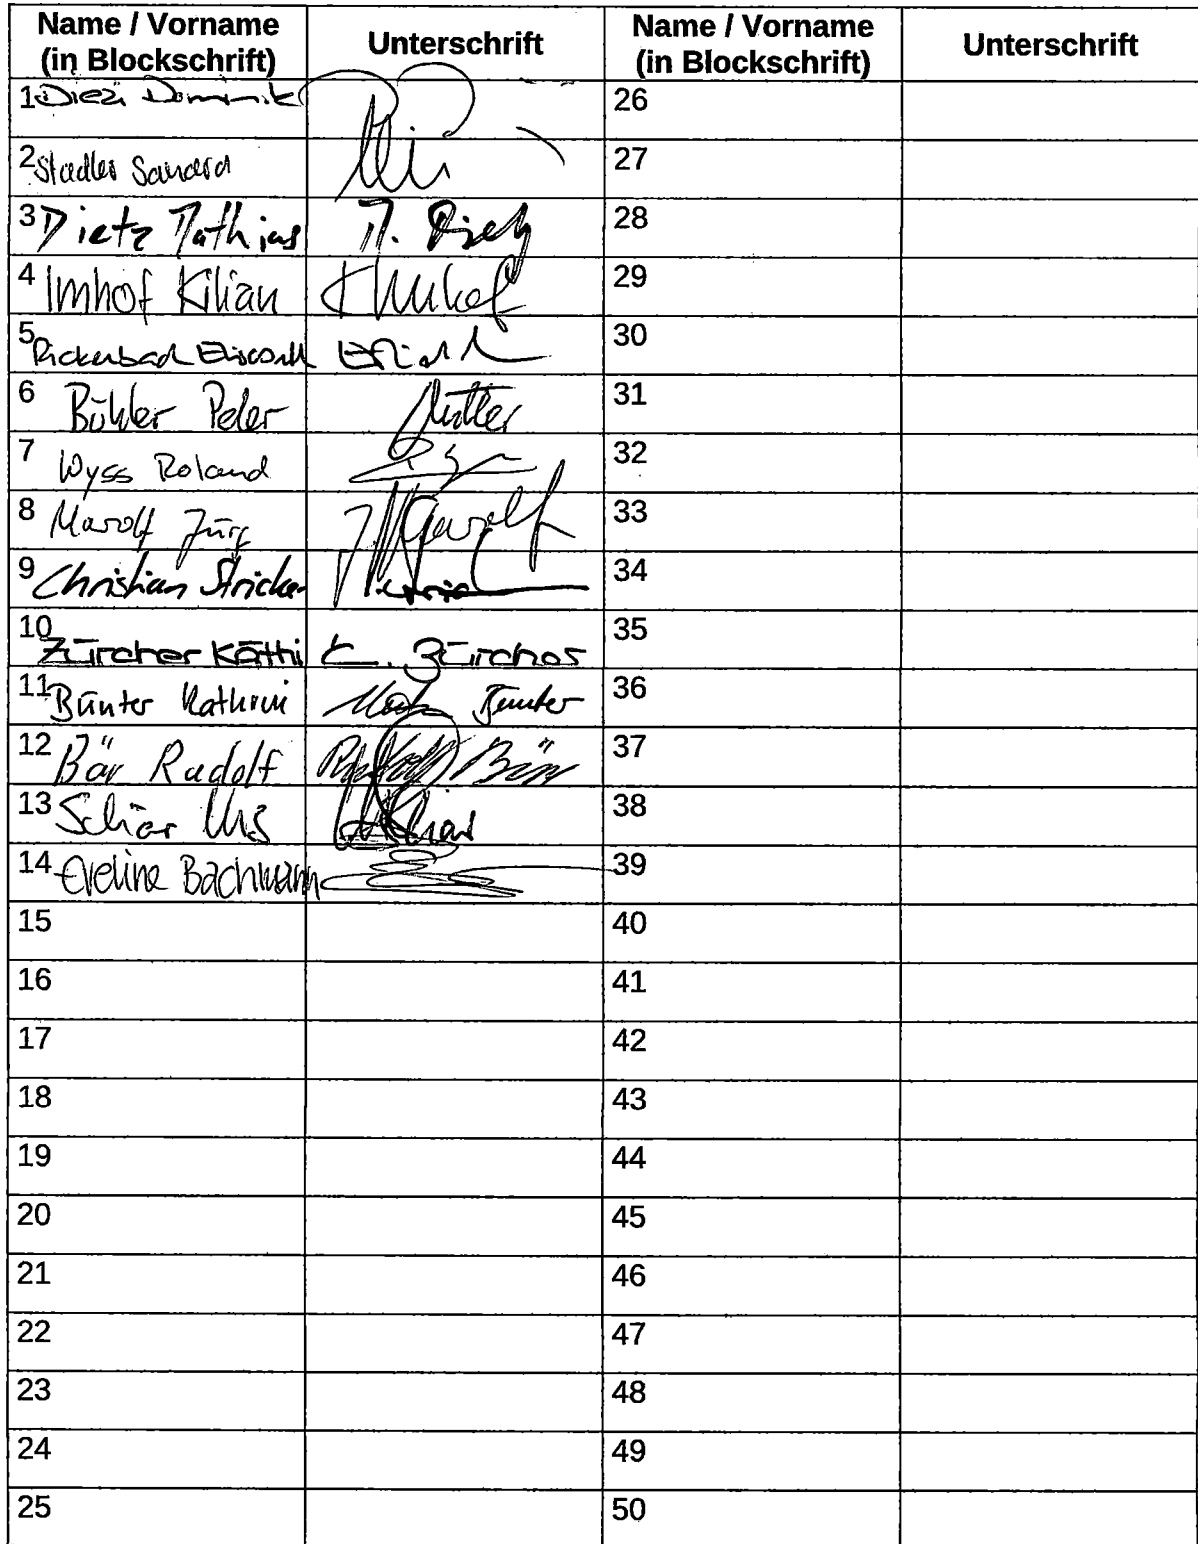 Name / Vorname (in Blockschrift) Unterschrift Name / Vorname (in Blockschrift) Unterschrift
1 Diezi Dominik 26
2 Stadler 27
3 Dietz Mathias M. Dietz 28
4 Imhof Kilian K Imhof 29
5 Rickenbach 30
6 Bühler Peter 31
7 Wyss Roland 32
8 Marolf Jürg J Marolf 33
9 Christian Stricker 34
10 Zürcher Käthi K. Zürcher 35
11 Bünter Kathrin Bünter 36
12 Bär Rudolf Rudolf Bär 37
13 Schär Urs 38
14 Eveline Bachmann 39
15 40
16 41
17 42
18 43
19 44
20 45
21 46
22 47
23 48
24 49
25 50